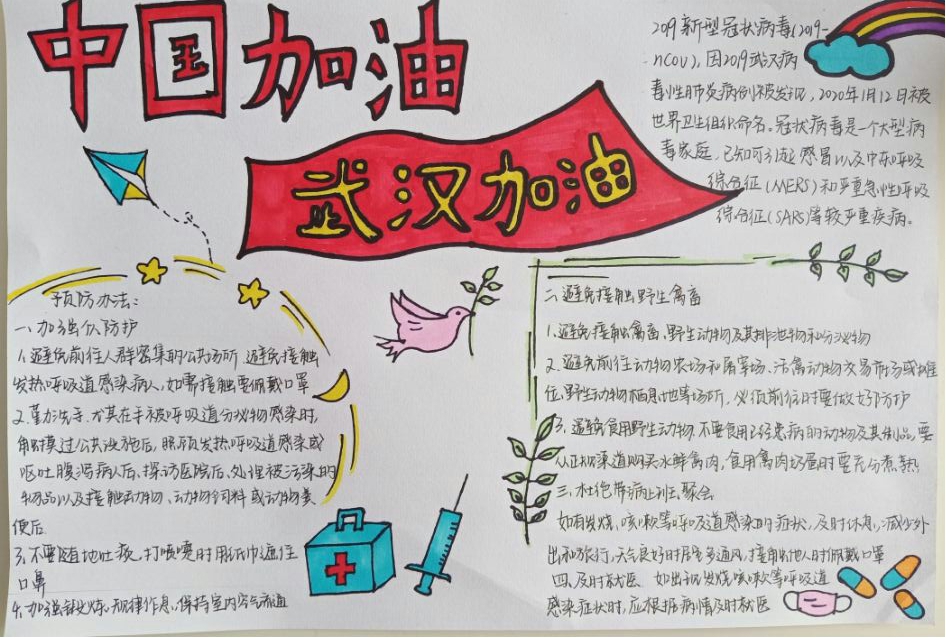 中国加油
武汉加油
2019新型冠状病毒(2019-
nCoV),因2019武汉病
毒性肺炎病例被发现,2020年1月12日被
世界卫生组织命名。冠状病毒是一个大型病
毒家庭,已知可引起感冒以及中东呼吸
综合征(MERS)和严重急性呼吸
综合征(SARS)等较严重疾病。
预防办法:
一、加强个人防护
1、避免前往人群密集的公共场所 避免接触
发热呼吸道感染病人,如需接触要佩戴口罩
2、勤洗手.尤其在手被呼吸道分泌物感染时,
触摸过公共设施后,照顾发热呼吸道感染或
呕吐腹泻病人后、探访医院后、处理被污染的
物品以及接触动物、动物饲料或动物粪
便后
3、不要随地吐痰,打喷嚏时用纸巾遮住
口鼻
4、加强锻炼、规律作息、保持室内空气流通
二、避免接触野生禽畜
1、避免接触禽畜、野生动物及其排泄物和分泌物
2、避免前往动物农场和屠宰场、活禽动物交易市场或摊
位、野生动物栖息地等场所,必须前往时要做好防护
3、避免食用野生动物.不要食用已经患病的动物及其制品,要
从正规渠道购买冰鲜禽肉,食用禽肉奶蛋时要充分煮熟
三、杜绝带病上班、聚会
如有发烧、咳嗽等呼吸道感染的症状,及时休息,减少外
出和旅行,天气良好时居室多通风,接触他人时佩戴口罩
四、及时就医 如出现发烧咳嗽等呼吸道
感染症状时,应根据病情及时就医